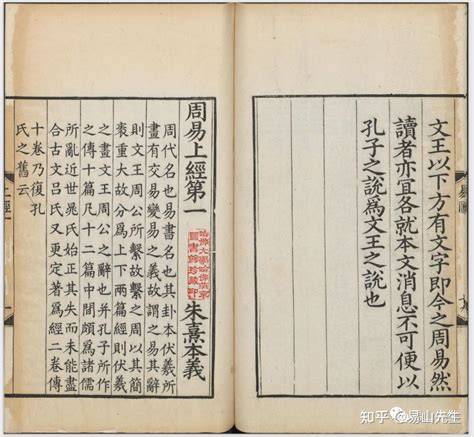 文王以下方有文字即今之周易然
讀者亦宜各就本文消息不可便以
孔子之說爲文王之說也
周易上經第一
朱熹本義
哈佛大學哈佛燕京
圖書館珍藏印
周代名也易書名也其卦本伏羲所
畫有交易變易之義故謂之易其辭
則文王周公所繫故繫之周以其簡
袠重大故分爲上下兩篇經則伏羲
之畫文王周公之辭也并孔子所作
之傳十篇凡十二篇中間頗爲諸儒
所亂近世晁氏始正其失而未能盡
合古文呂氏又更定著爲經二卷傳
十卷乃復孔
氏之舊云
上經 一
知乎 @易山先生